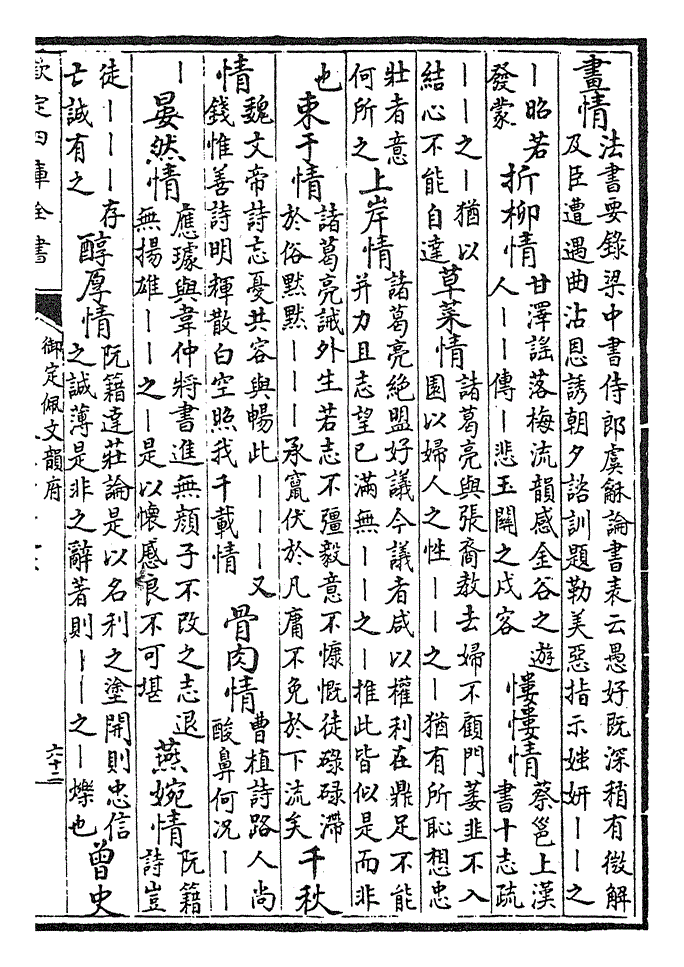 畫情
法書要錄梁中書侍郎虞龢論書表云愚好既深稍有微解
及臣遭遇曲沾恩誘朝夕諮訓題勒美惡指示媸妍丨丨之
丨昭若
發蒙
折柳情
甘澤謡落梅流韻感金谷之遊
人丨丨傳丨悲玉關之戍客
慺慺情
蔡邕上漢
書十志疏
丨丨之丨猶以
結心不能自達
草菜情
諸葛亮與張裔教去婦不顧門萎韭不入
園以婦人之性丨丨之丨猶有所恥想忠
壯者意
何所之
上岸情
諸葛亮絶盟好議今議者咸以權利在鼎足不能
并力且志望已滿無丨丨之丨推此皆似是而非
也
束于情
諸葛亮誡外生若志不彊毅意不慷慨徒碌碌滯
於俗黙黙丨丨丨承竄伏於凡庸不免於下流矣
千秋
情
魏文帝詩忘憂共容與暢此丨丨丨又
錢惟善詩明輝散白空照我千載情
骨肉情
曹植詩路人尚
酸鼻何况丨丨
丨
晏然情
應璩與韋仲將書進無顔子不改之志退
無揚雄丨丨之丨是以懷慼良不可堪
燕婉情
阮籍
詩豈
徒丨丨丨存
亡誠有之
醇厚情
阮籍達莊論是以名利之塗開則忠信
之誠薄是非之辭著則丨丨之丨爍也
曾史
欽定四庫全書
御定佩文韻府
六十二